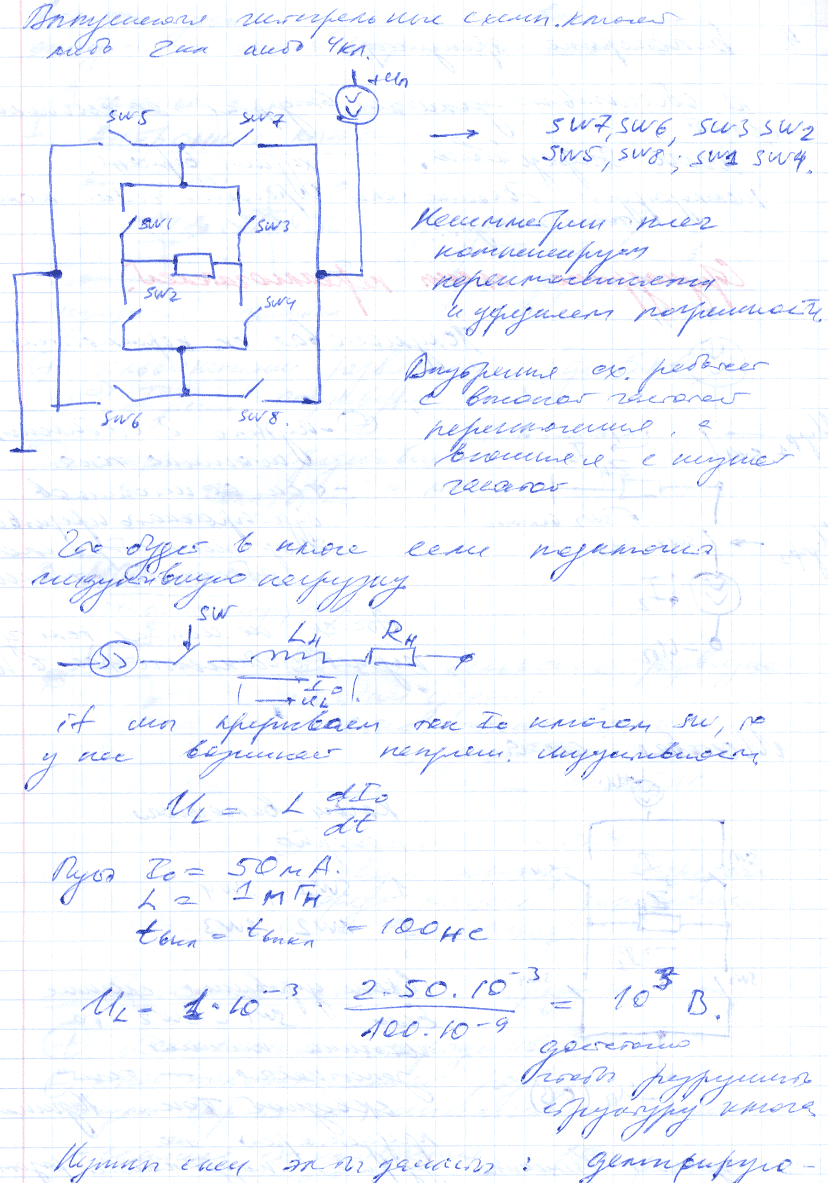 Выпускаются интегральные схемы. ключей
либо 2кл либо 4кл.
+Uп
SW5
SW7
SW7, SW6, SW3 SW2
SW5, SW8; SW1 SW4.
SW1
SW3
SW2
SW4
SW6
SW8.
Несимметрии плеч
переключения
и убираем погрешности.
Внутрення сх. работает
с высокой частотой
переключения, а
внешняя с низкой
частотой
Что будет в ключе если подключить
индуктивную нагрузку
SW
Lн
Rн
I0
UL
if мы прерываем ток I0 ключом SW, то
у нас возникает напряж. индуктивности
UL = L dI0/dt
Пусть I0 = 50мА.
L = 1мГн
tвкл = tвыкл = 100нс
UL = 1·10^-3 · 2·50·10^-3 / 100·10^-9 = 10^3 В.
достаточно
чтобы разрушить
структуру ключа
Нужны спец эл-ты защиты: